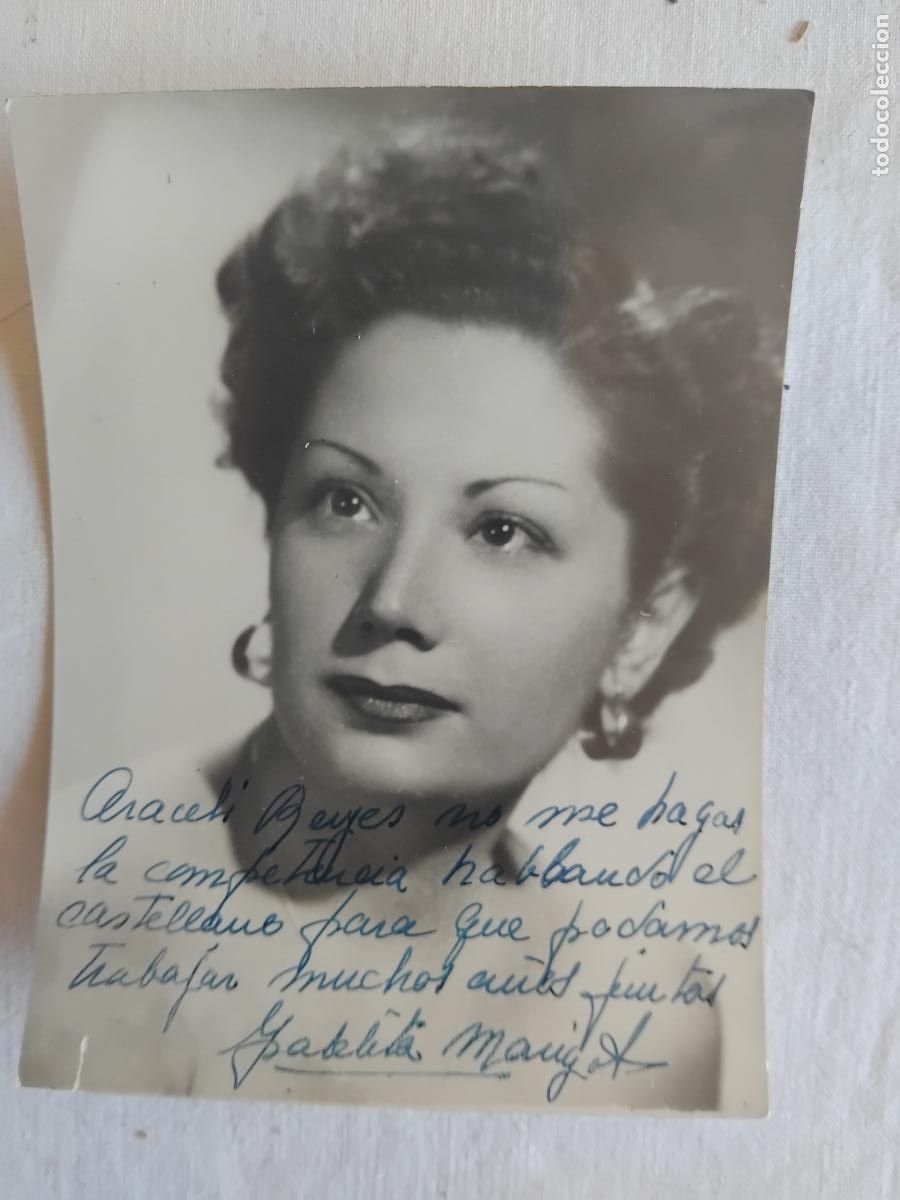 Araceli Reyes no me hagas
la competencia habblando el
castellano para que podamos
trabajar muchos años juntas
Isabelita Margot
todocoleccion